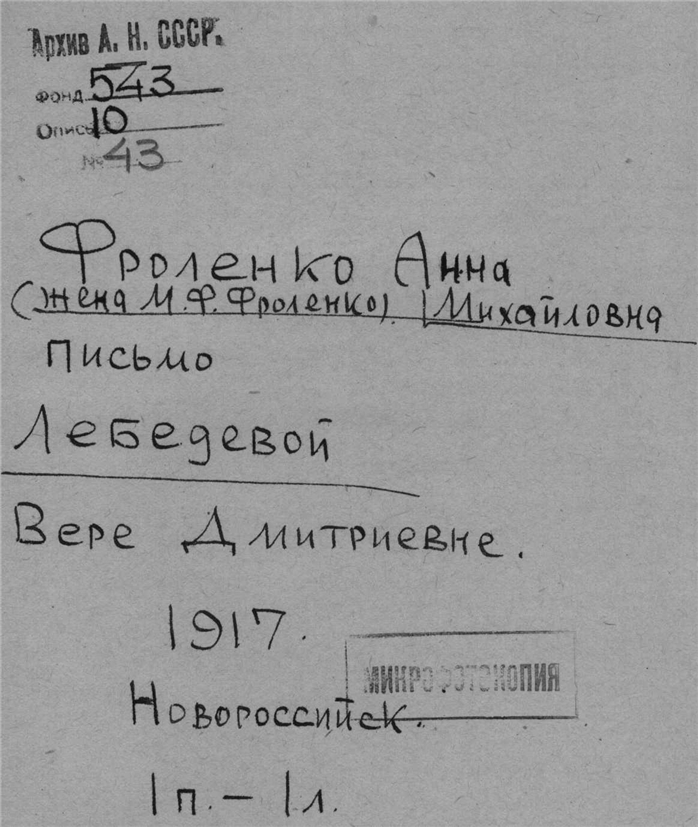 Архив А. Н. СССР.
Фонд 543
Опись 10
№ 43
Фроленко Анна
(жена М.Ф. Фроленко) Михайловна
письмо
Лебедевой
Вере Дмитриевне.
1917.
МИКРОФОТОКОПИЯ
Новороссийск.
1 п. – 1 л.